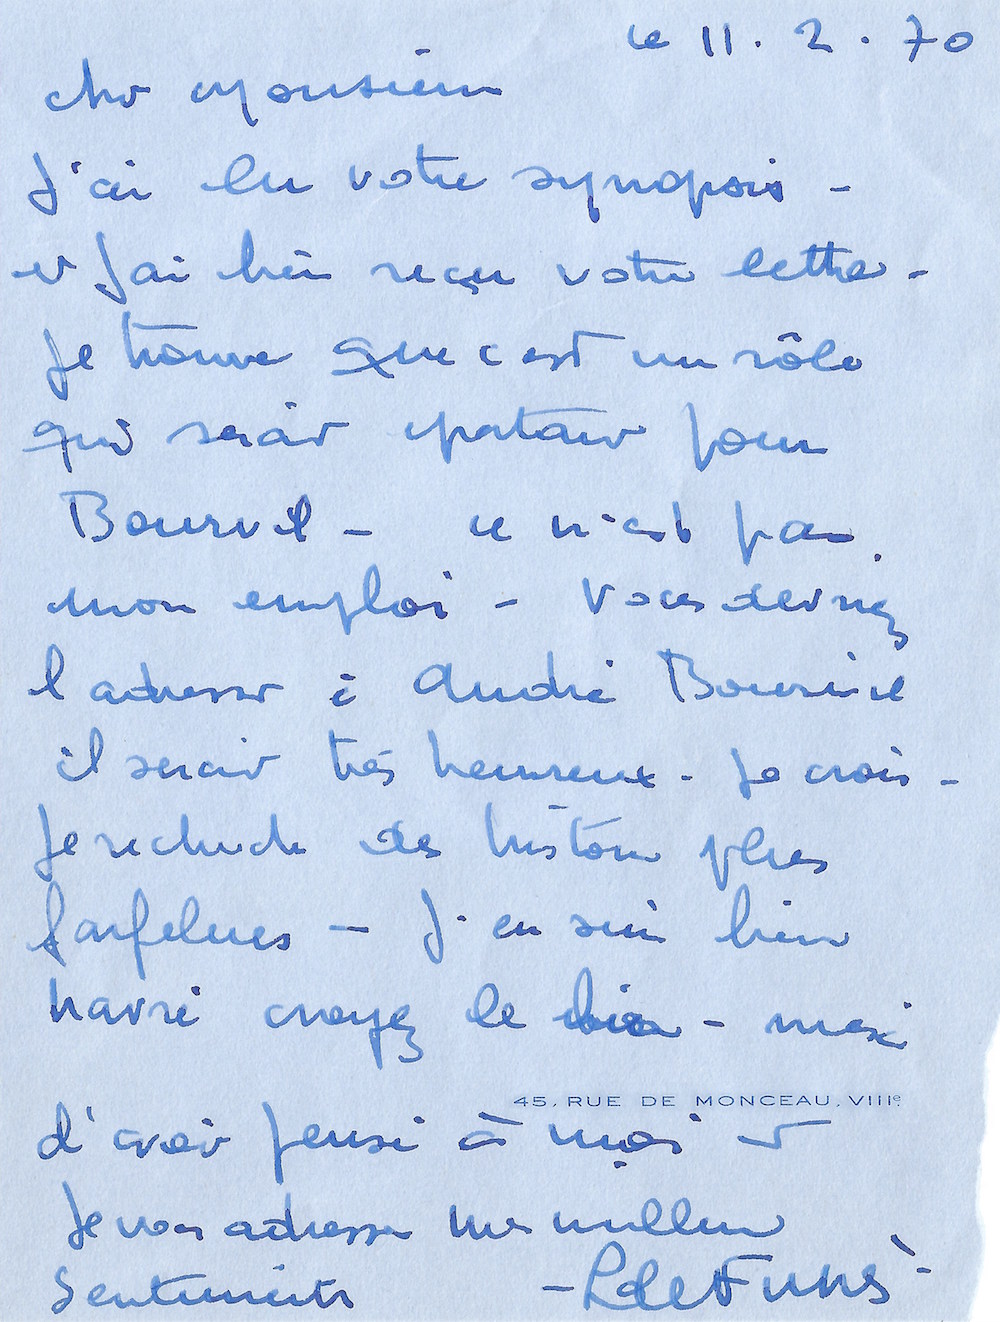 le 11.2.70
cher Monsieur
J'ai lu votre synopsis -
et j'ai bien reçu votre lettre -
Je trouve que c'est un rôle
qui serait épatant pour
Bourvil - ce n'est pas
mon emploi - Vous devriez
l'adresser à André Bourvil
il serait très heureux - Je crois -
Je recherche des histoires plus
farfelues - J'en suis bien
navré croyez le bien - merci
45, RUE DE MONCEAU, VIIIe
d'avoir pensé à moi et
Je vous adresse mes meilleurs
Sentiments - L de Funès -